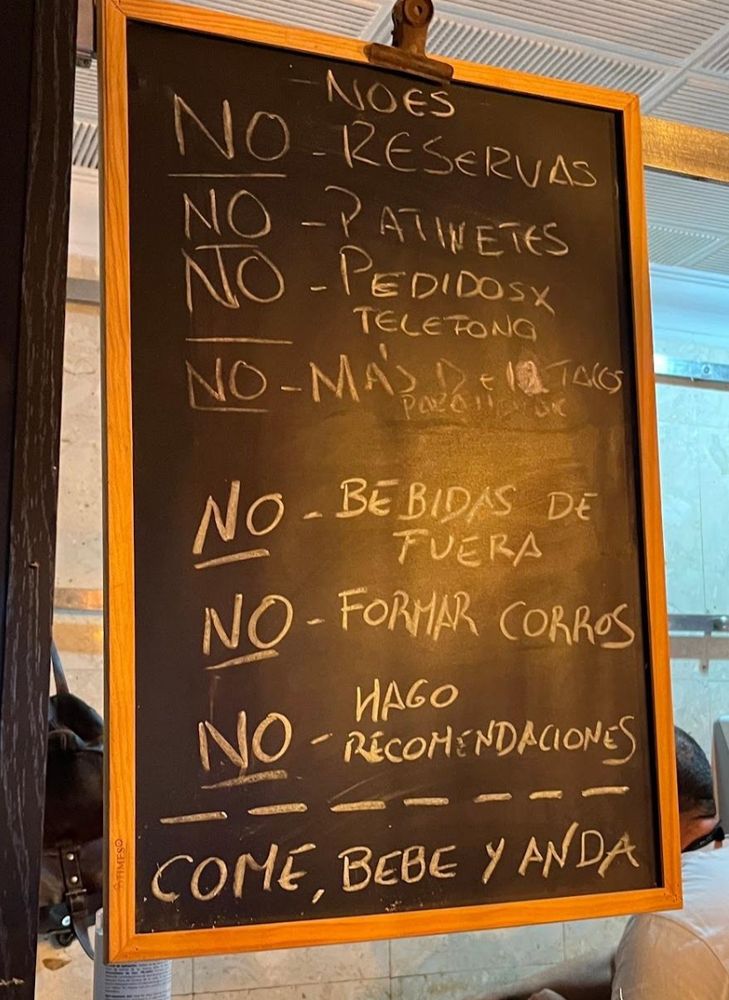 - NOES
NO - RESERVAS
NO - PATINETES
NO - PEDIDOS X
TELEFONO
NO - MÁS DE TACOS
NO - BEBIDAS DE
FUERA
NO - FORMAR CORROS
HAGO
NO - RECOMENDACIONES
COME, BEBE Y ANDA
TIMES